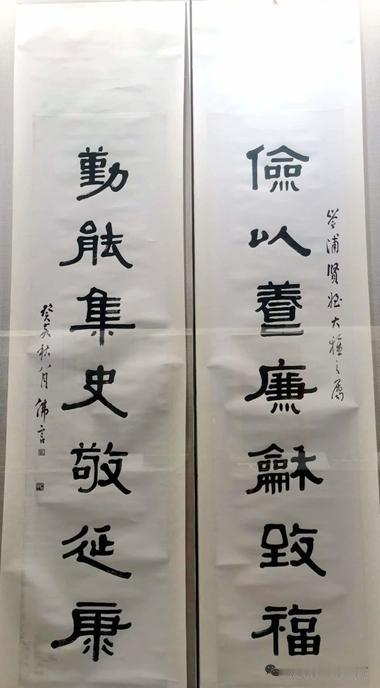 浦賢姪大雅之屬
儉以養廉龢致福
勤能集史敬延康
癸亥秋八月佛言